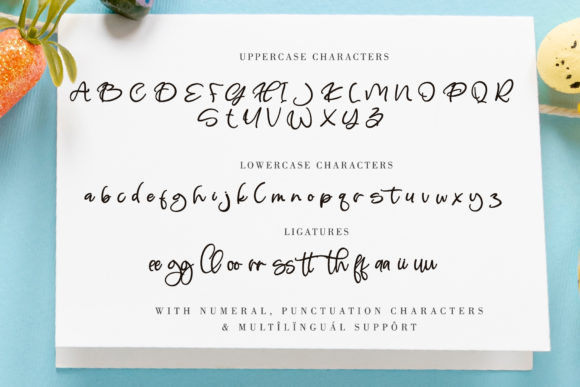 UPPERCASE CHARACTERS
A B C D E F G H I J K L M N O P Q R
S t U V W X Y Z
LOWERCASE CHARACTERS
a b c d e f g h i j k l m n o p q r s t u v w x y z
LIGATURES
ee gg ll oo rr ss tt th ff aa ii uu
WITH NUMERAL, PUNCTUATION CHARACTERS
& MULTÎLÏNGUÁL SUPPÔRT